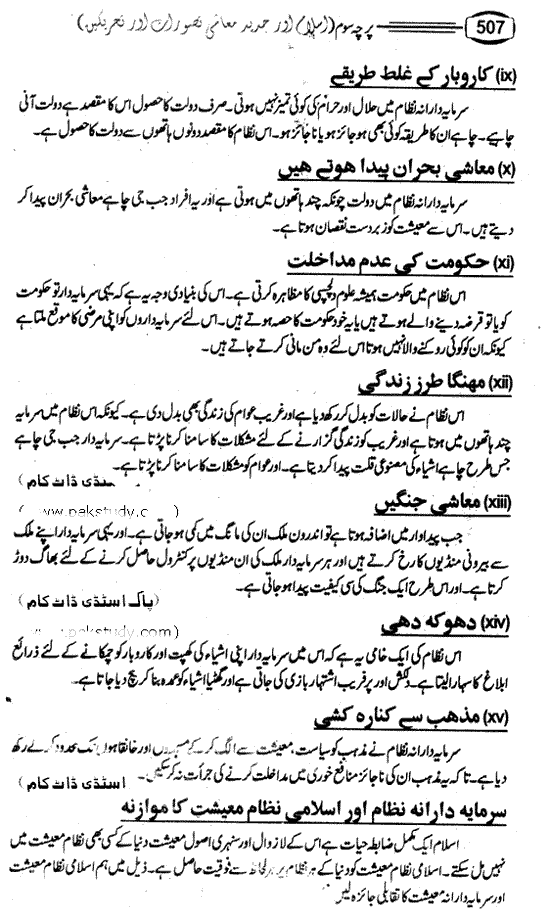 507 پرچہ سوم (اسلام اور جدید معاشی تصورات اور تحریکیں)
(ix) کاروبار کے غلط طریقے
سرمایہ دارانہ نظام میں حلال اور حرام کی کوئی تمیز نہیں ہوتی۔ صرف دولت کا حصول اس کا مقصد ہے دولت آنی
چاہیے۔ چاہے ان کا طریقہ کوئی بھی ہو جائز ہو یا ناجائز ہو۔ اس نظام کا مقصد دونوں ہاتھوں سے دولت کا حصول ہے۔
(x) معاشی بحران پیدا ہوتے ہیں
سرمایہ دارانہ نظام میں دولت چونکہ چند ہاتھوں میں ہوتی ہے اور یہ افراد جب جی چاہے معاشی بحران پیدا کر
دیتے ہیں۔ اس سے معیشت کو زبردست نقصان ہوتا ہے۔
(xi) حکومت کی عدم مداخلت
اس نظام میں حکومت ہمیشہ عدم دلچسپی کا مظاہرہ کرتی ہے۔ اس کی بنیادی وجہ یہ ہے کہ یہی سرمایہ دار تو حکومت
کو یا تو قرضہ دینے والے ہوتے ہیں یا یہ خود حکومت کا حصہ ہوتے ہیں۔ اس لئے سرمایہ داروں کو اپنی مرضی کا موقع ملتا ہے
کیونکہ ان کو کوئی روکنے والا نہیں ہوتا اس لئے وہ من مانی کرتے جاتے ہیں۔
(xii) مہنگا طرز زندگی
اس نظام نے حالات کو بدل کر رکھ دیا ہے اور غریب عوام کی زندگی بھی بدل دی ہے۔ کیونکہ اس نظام میں سرمایہ
چند ہاتھوں میں ہوتا ہے اور غریب کو زندگی گزارنے کے لئے مشکلات کا سامنا کرنا پڑتا ہے۔ سرمایہ دار جب جی چاہے
جس طرح چاہے اشیاء کی مصنوعی قلت پیدا کر دیتا ہے۔ اور عوام کو مشکلات کا سامنا کرنا پڑتا ہے۔
سٹڈی ڈاٹ کام)
(xiii) معاشی جنگیں
www.pakstudy.com)
جب پیداوار میں اضافہ ہوتا ہے تو اندرون ملک ان کی مانگ میں کمی ہو جاتی ہے۔ اور یہی سرمایہ دار اپنے ملک
سے بیرونی منڈیوں کا رخ کرتے ہیں اور ہر سرمایہ دار ملک کی ان منڈیوں پر کنٹرول حاصل کرنے کے لئے بھاگ دوڑ
کرتا ہے۔ اور اس طرح ایک جنگ کی سی کیفیت پیدا ہو جاتی ہے۔
(پاک اسٹڈی ڈاٹ کام)
(xiv) دھوکہ دھی
www.pakstudy.com)
اس نظام کی ایک خامی یہ ہے کہ اس میں سرمایہ دار اپنی اشیاء کی کھپت اور کاروبار کو چمکانے کے لئے ذرائع
ابلاغ کا سہارا لیتا ہے۔ دلکش اور پر فریب اشتہار بازی کی جاتی ہے اور گھٹیا اشیاء کو عمدہ بنا کر بیچ دیا جاتا ہے۔
(xv) مذہب سے کنارہ کشی
سرمایہ دارانہ نظام نے مذہب کو سیاست، معیشت سے الگ کر کے مسجدوں اور خانقاہوں تک محدود کر کے رکھ
دیا ہے۔ تاکہ یہ مذہب ان کی ناجائز منافع خوری میں مداخلت کرنے کی جرأت نہ کر سکیں۔
اسٹڈی ڈاٹ کام)
سرمایہ دارانہ نظام اور اسلامی نظام معیشت کا موازنہ
اسلام ایک مکمل ضابطہ حیات ہے اس کے لازوال اور سنہری اصول معیشت دنیا کے کسی بھی نظام معیشت میں
نہیں مل سکتے۔ اسلامی نظام معیشت کو دنیا کے ہر نظام پر ہر لحاظ سے فوقیت حاصل ہے۔ ذیل میں ہم اسلامی نظام معیشت
اور سرمایہ دارانہ معیشت کا تقابلی جائزہ لیں